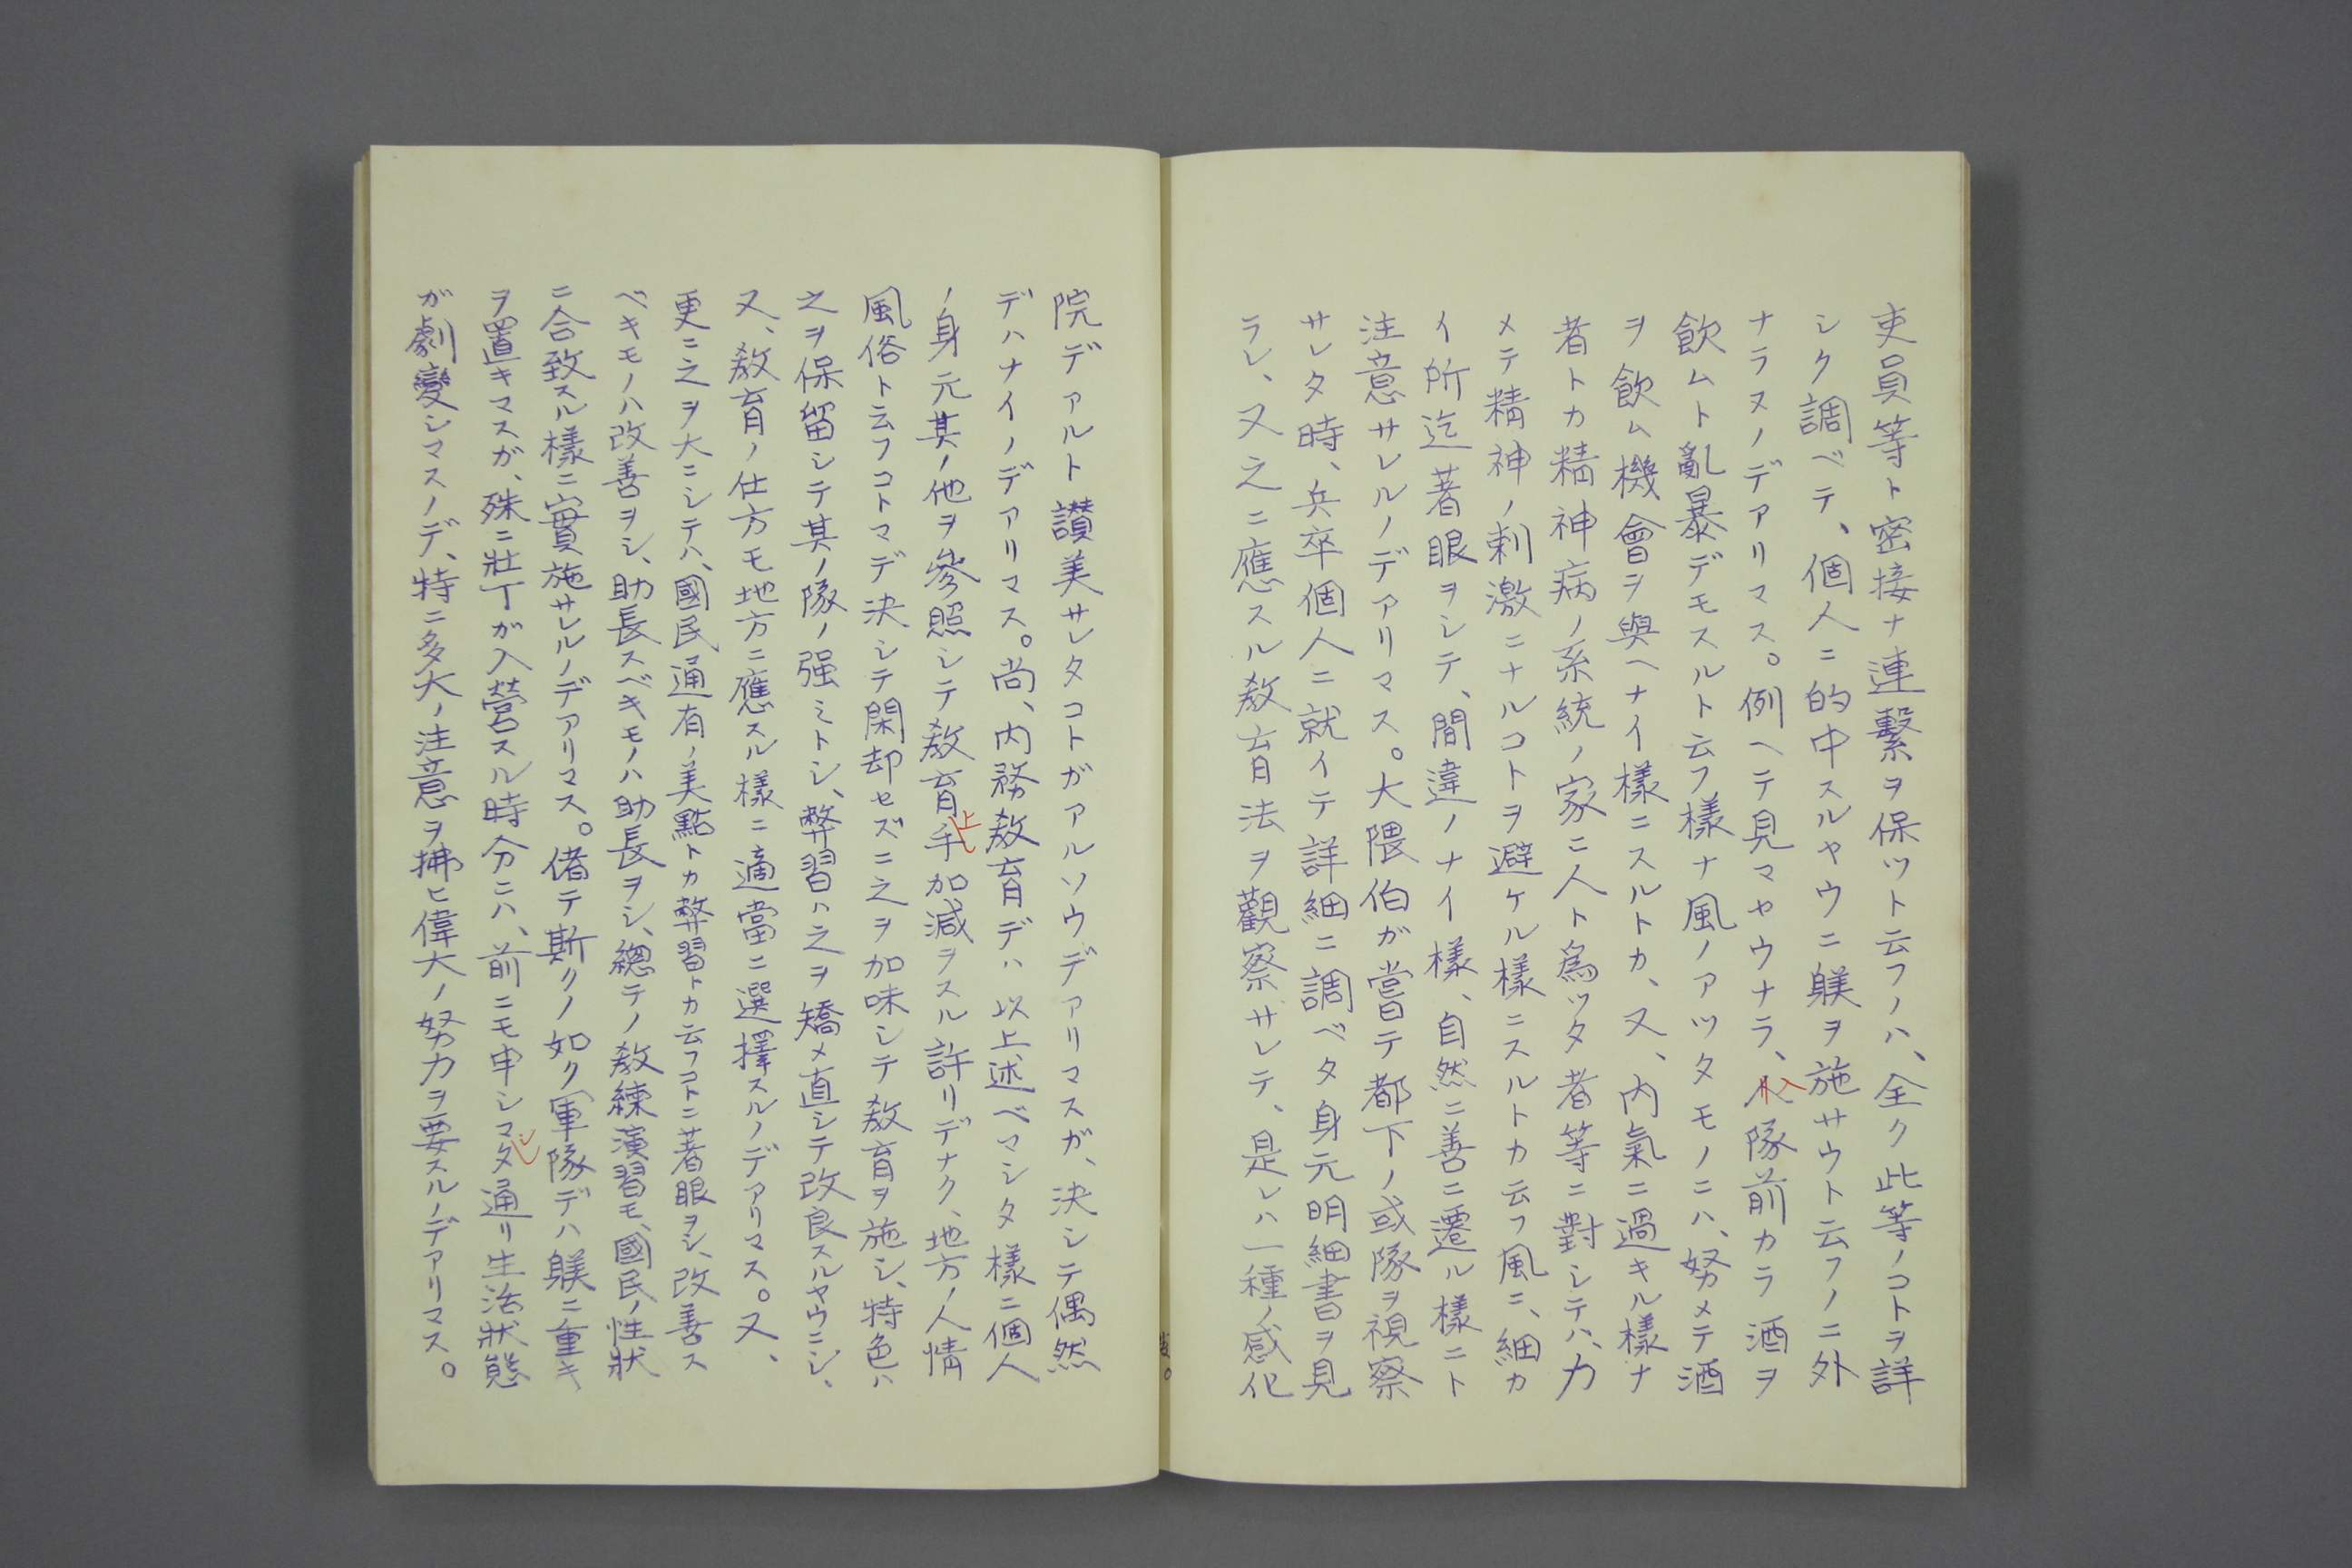 吏員等ト密接ナ連繫ヲ保ツト云フノハ、全ク此等ノコトヲ詳
シク調ベテ、個人ニ的中スルヤウニ躾ヲ施サウト云フノニ外
ナラヌノデアリマス。例ヘテ見マヤウナラ、入隊前カラ酒ヲ
飮ムト亂暴デモスルト云フ樣ナ風ノアツタモノニハ、努メテ酒
ヲ飮ム機會ヲ與ヘナイ樣ニスルトカ、又、內氣ニ過キル樣ナ
者トカ精神病ノ系統ノ家ニ人ト爲ツタ者等ニ對シテハ、力
メテ精神ノ刺激ニナルコトヲ避ケル樣ニスルトカ云フ風ニ、細カ
イ所迄著眼ヲシテ、間違ノナイ樣、自然ニ善ニ遷ル樣ニト
注意サレルノデアリマス。大隈伯が嘗テ都下ノ或隊ヲ視察
サレタ時、兵卒個人ニ就イテ詳細ニ調ベタ身元明細書ヲ見
ラレ、又之ニ應スル敎育法ヲ觀察サレテ、是レハ一種ノ感化
院デアルト讃美サレタコトガアルソウデアリマスガ、決シテ偶然
デハナイノデアリマス。尚、內務敎育デハ以上述ベマシタ樣ニ個人
ノ身元其ノ他ヲ參照シテ敎育上手加減ヲスル許リデナク、地方ノ人情
風俗ト云フコトマデ決シテ閑却セズニ之ヲ加味シテ敎育ヲ施シ、特色ハ
之ヲ保留シテ其ノ隊ノ强ミトシ、弊習ハ之ヲ矯メ直シテ改良スルヤウニシ、
又、敎育ノ仕方モ地方ニ應スル樣ニ適當ニ選擇スルノデアリマス。又、
更ニ之ヲ大ニシテハ、國民通有ノ美點トカ弊習トカ云フコトニ著眼ヲシ、改善ス
ベキモノハ改善ヲシ、助長スベキモノハ助長ヲシ、總テノ敎練演習モ、國民ノ性狀
ニ合致スル樣ニ實施サレルノデアリマス。偖テ斯クノ如ク軍隊デハ躾ニ重キ
ヲ置キマスガ、殊ニ壯丁が入營スル時分ニハ、前ニモ申シマシタ通リ生活狀態
が劇變シマスノデ、特ニ多大ノ注意ヲ拂ヒ偉大ノ努力ヲ要スルノデアリマス。